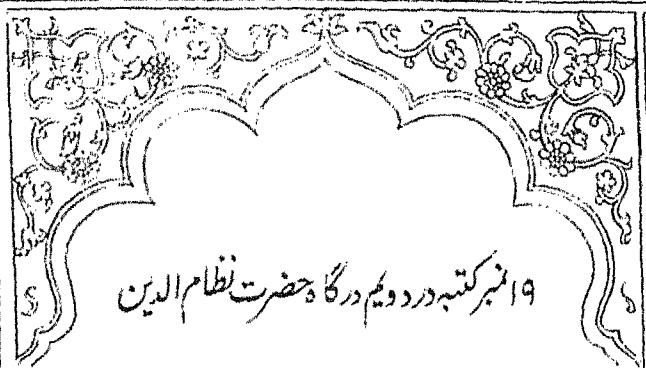 ۱۹نمبر کتبہ در دویم درگاہ حضرت نظام الدین